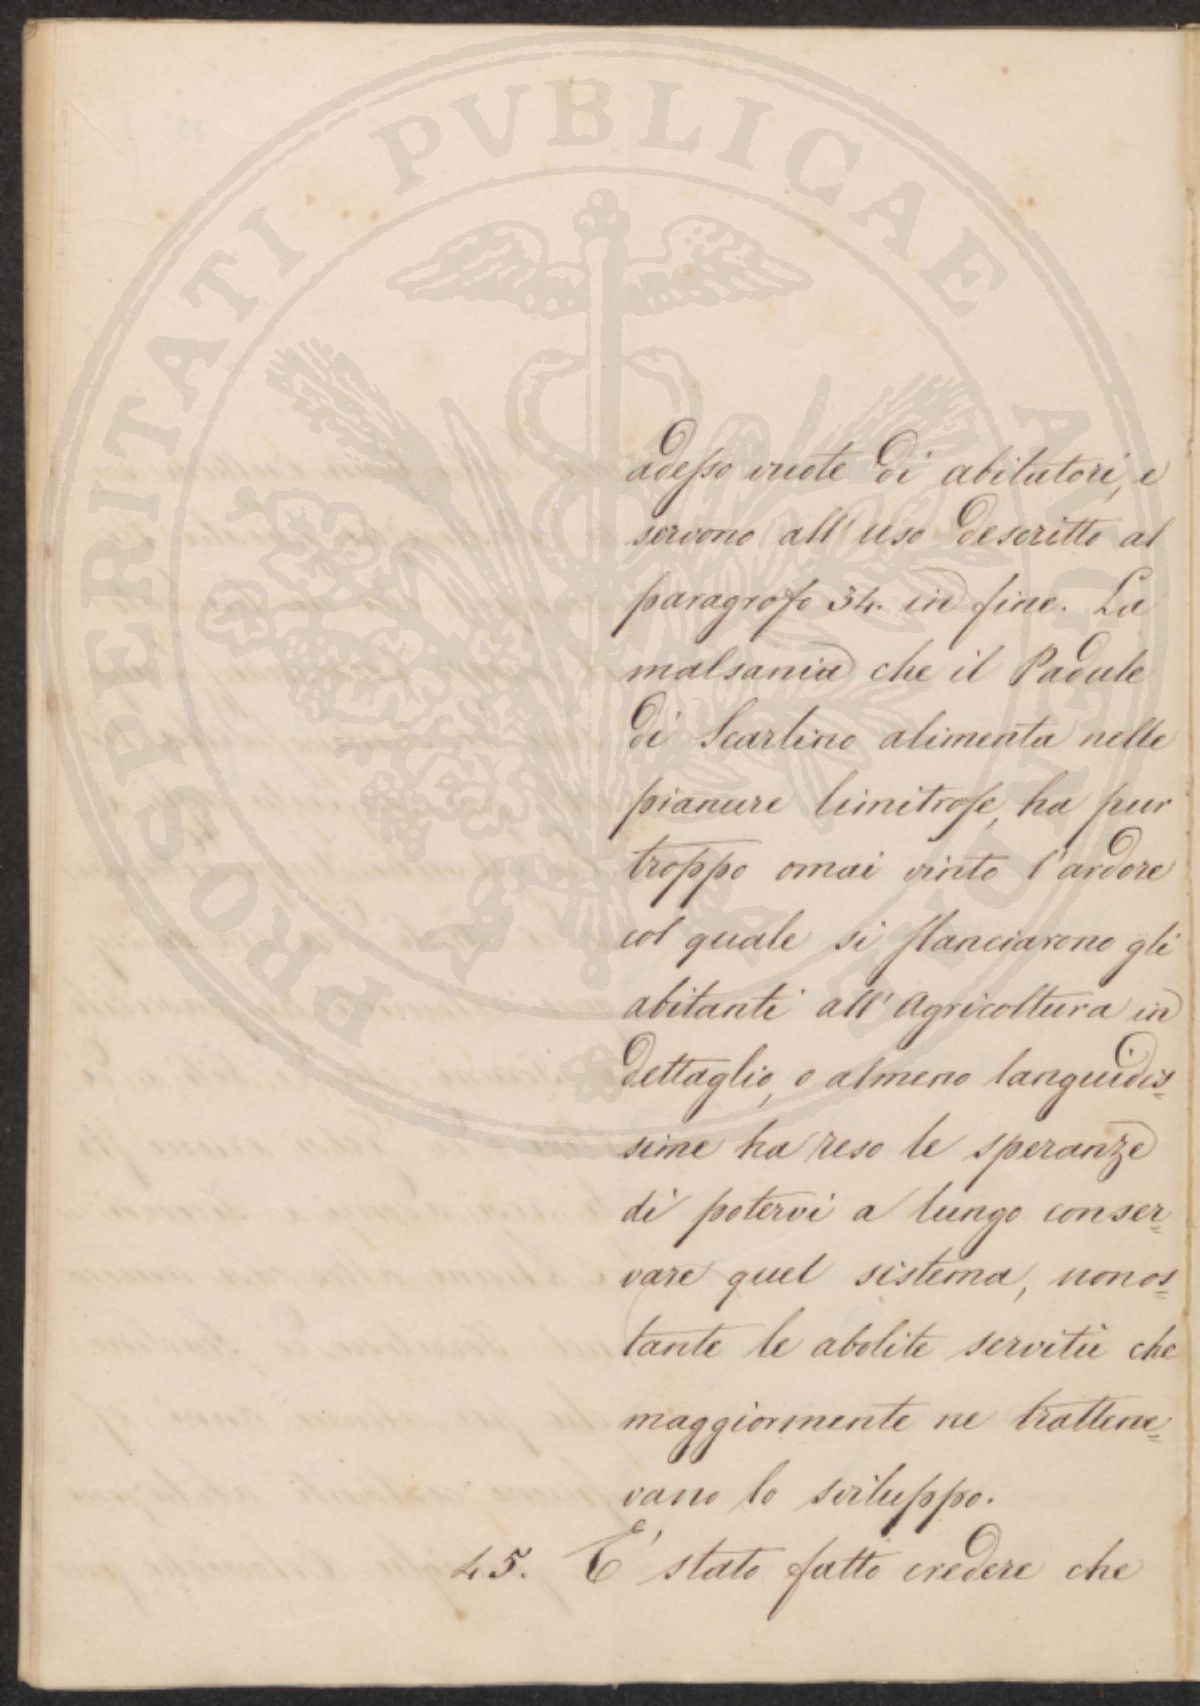 PROSPERITATI PVBLICAE AVGENDAE
adesso vuote di abitatori, e
servono all'uso descritto al
paragrafo 34. in fine. La
malsania che il Padule
di Scarlino alimenta nelle
pianure limitrofe, ha pur
troppo omai vinto l'ardore
col quale si slanciarono gli
abitanti all'Agricoltura in
dettaglio, o almeno languidis=
sime ha reso le speranze
di potervi a lungo conser=
vare quel sistema, nonos=
tante le abolite servitù che
maggiormente ne trattene=
vano lo sviluppo.
45. E' stato fatto credere che